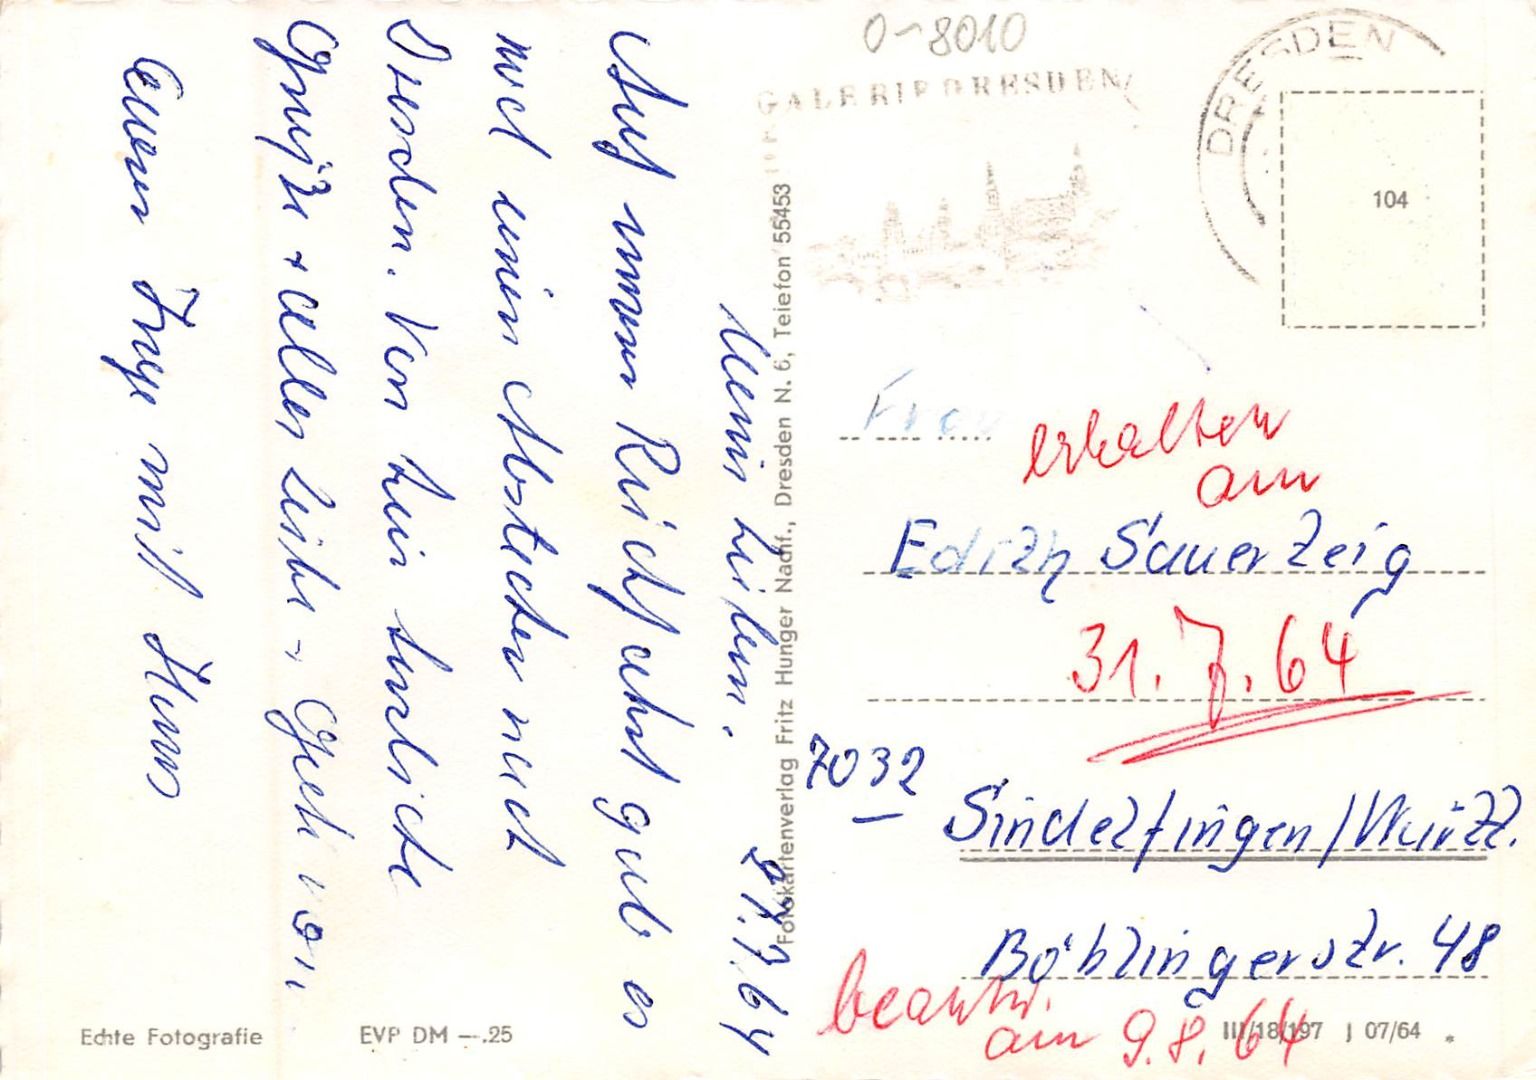 0-8010
GALERIE DRESDEN
DRESDEN
104
Meine Lieben.
27.7.64
Auf unserer Rückfahrt gab es
noch einen Abstecher nach
Dresden. Von hier herzliche
Grüße + alles Liebe + Gute von
Eurer Inge mit Hans
Fotokartenverlag Fritz Hunger Nachf., Dresden N. 6, Telefon 55453
Frau
erhalten
am
Edith Sauerzeig
31.7.64
7032
Sindelfingen/Württ.
Böblingerstr. 48
beantw.
am 9.8.64
Echte Fotografie
EVP DM —.25
III/18/197 J 07/64